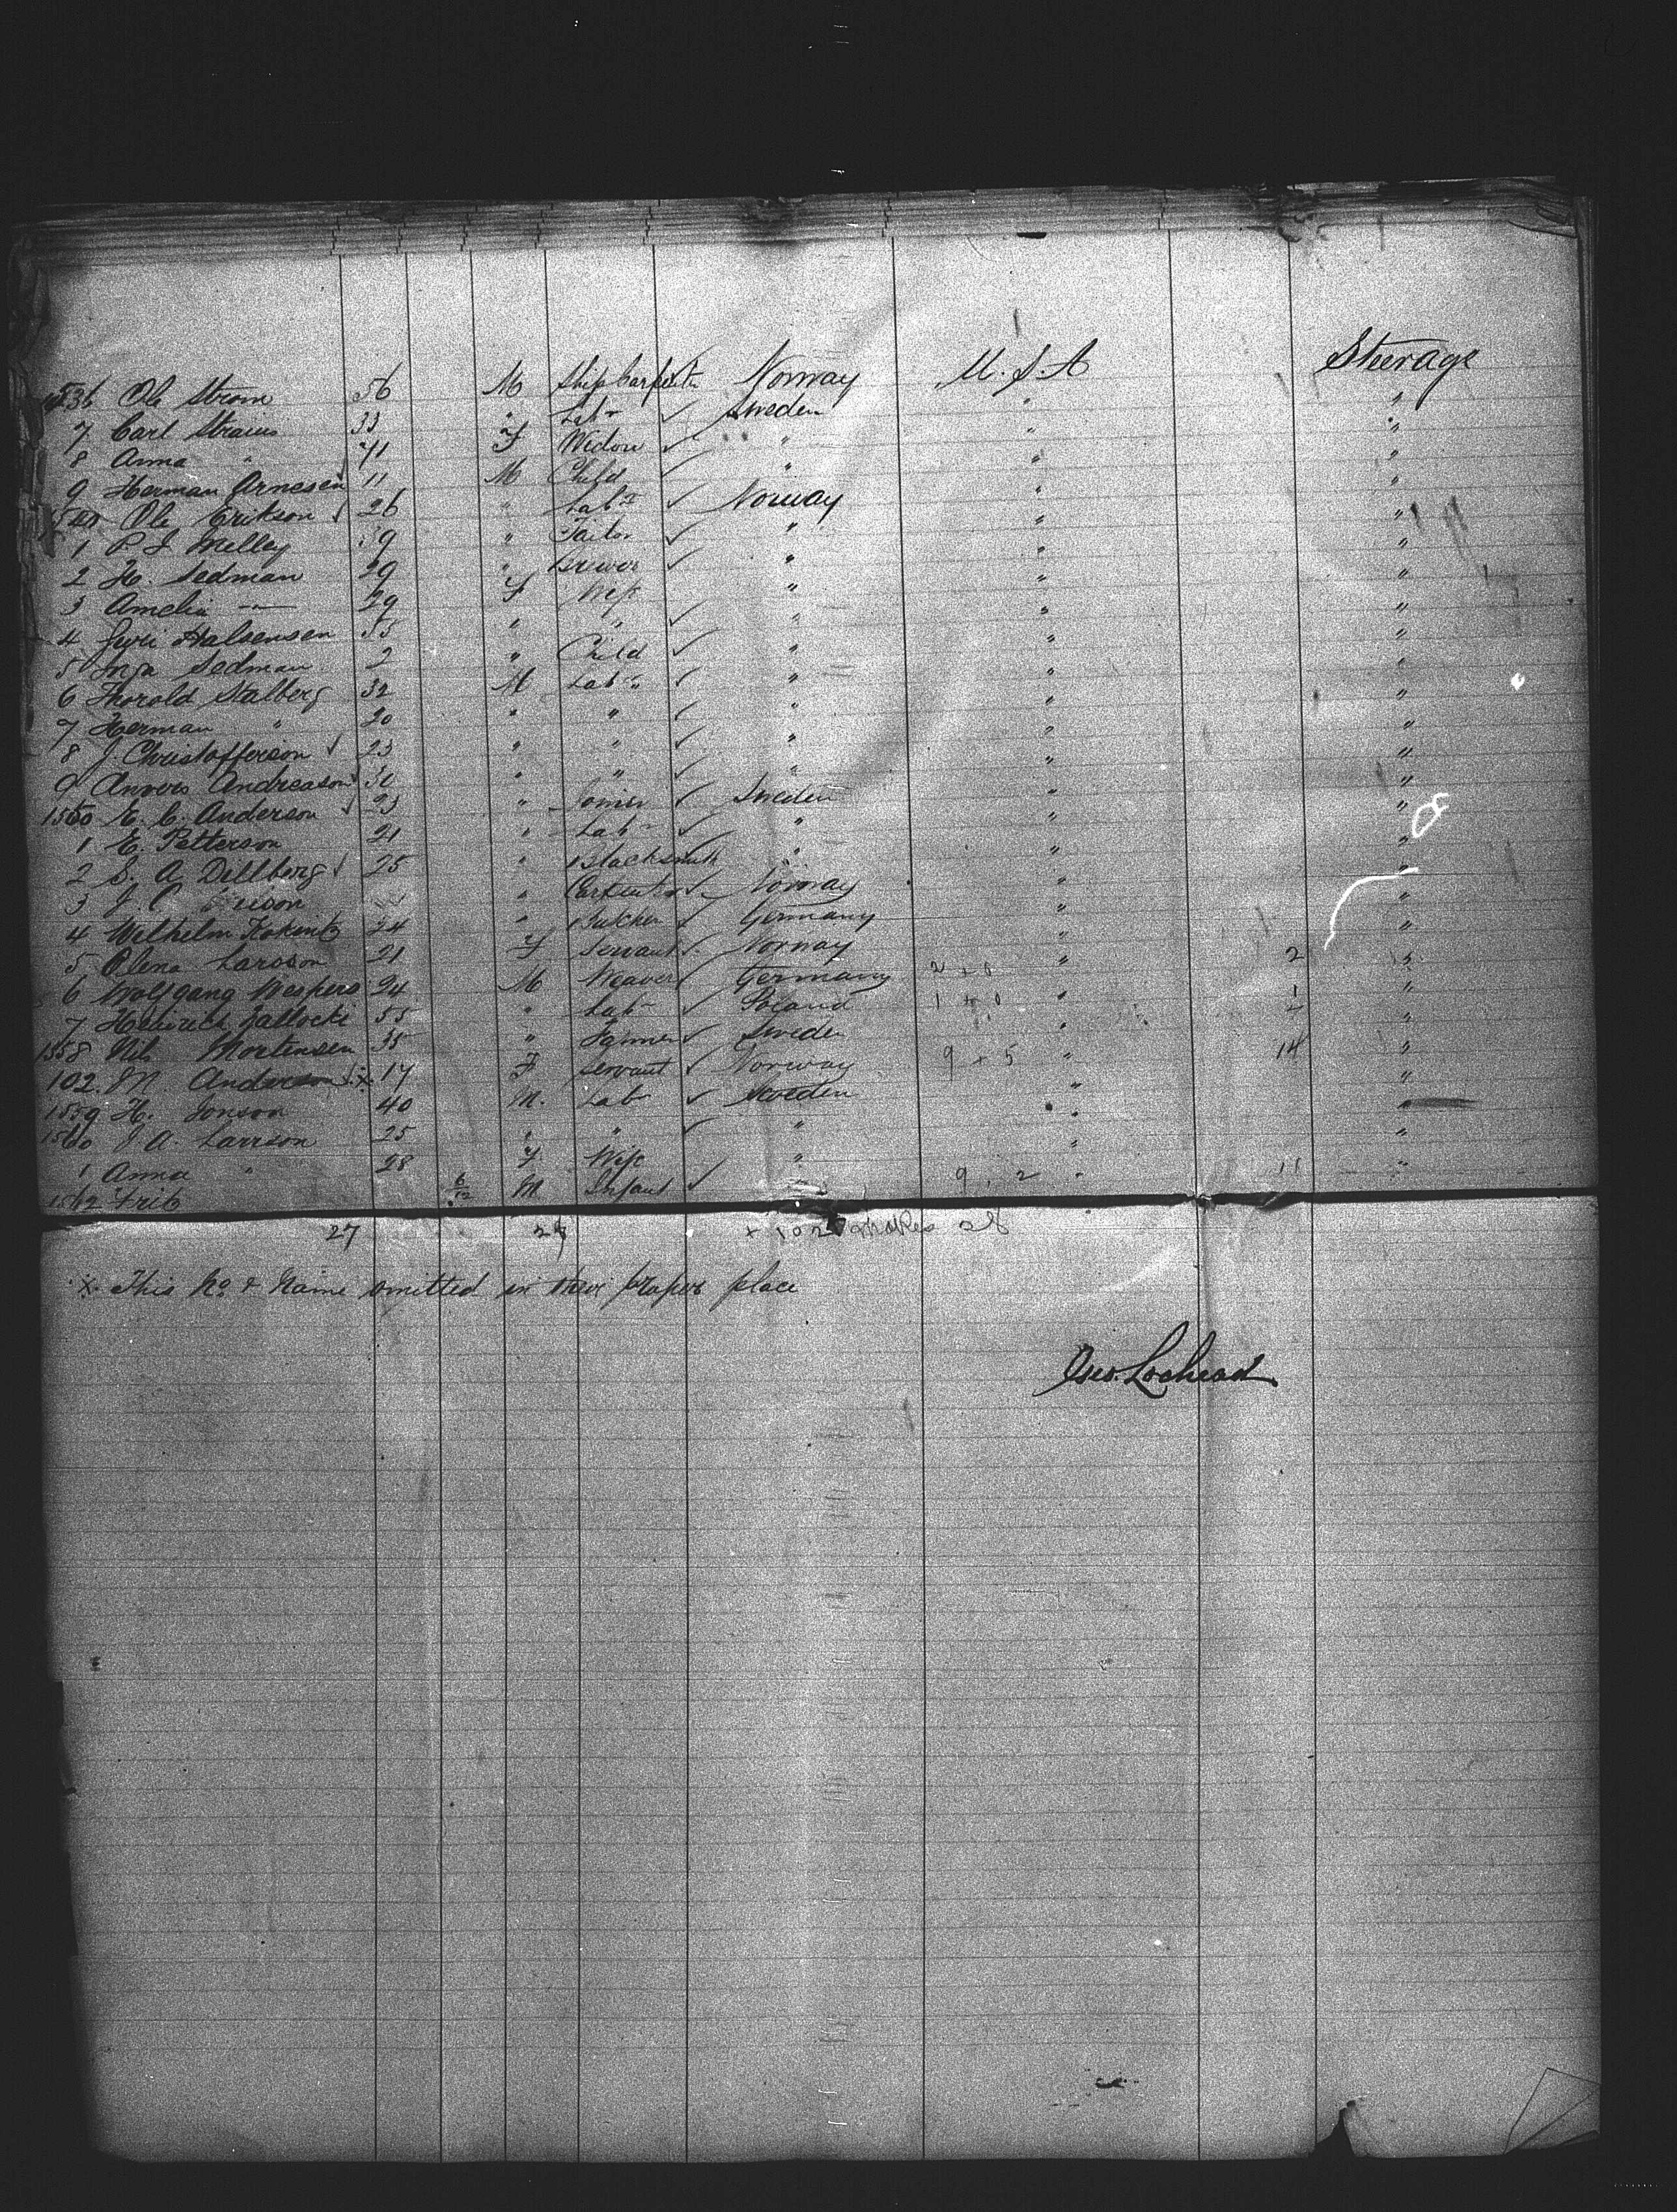 1536 Ole Strom 56 M Ship Carpenter Norway U.S.A Steerage
7 Carl Straus 33 " Labr ✓ Sweden " "
8 Anna " 71 F Widow ✓ " " "
9 Herman Arnesen ✓ 11 M Child ✓ " " "
1540 Ole Erikson ✓ 26 " Labr ✓ Norway " "
1 P. J. Melley 39 " Tailor ✓ " " "
2 H. Sedman 29 " Brewer ✓ " " "
3 Amelia " 29 F Wife " " "
4 Halsensen 55 " " ✓ " " "
5 Inga Sedman 2 " Child ✓ " " "
6 Thorold Stalberg 32 M Labr ✓ " " "
7 Herman " 20 " " ✓ " " "
8 J. Christofferson ✓ 23 " " ✓ " " "
9 Andreason ✓ 30 " " ✓ " " "
1550 E. C. Anderson ✓ 23 " Joiner ✓ Sweden " "
1 E. Petterson 21 " Labr ✓ " " "
2 S. A. Dellberg ✓ 25 " Blacksmith " " "
3 J. " Carpenter ✓ Norway " "
4 Wilhelm Kokintz 24 " Butcher ✓ Germany " "
5 Olena Larsson 21 F Servant ✓ Norway " "
6 Wolfgang Wespers 24 M Weaver ✓ Germany 2 + 0 " 2 "
7 Heinrich Zallocki 55 " Labr ✓ Poland 1 + 0 " 1 "
1558 Nils Mortensen 35 " Farmer ✓ Sweden " "
102. M. Anderson ※ 17 F Servant ✓ Norway 9 + 5 " 14 "
1559 H. Jonson 40 M. Labr ✓ Sweden " "
1560 J A. Larrson 25 " " ✓ " " "
1 Anna " 28 F Wife " " "
1562 Frits 6/12 M Infant ✓ " 9 . 2 " 11 "
27 27 + 102 makes 28
※ This No & Name omitted in their proper place
Geo. Lochead